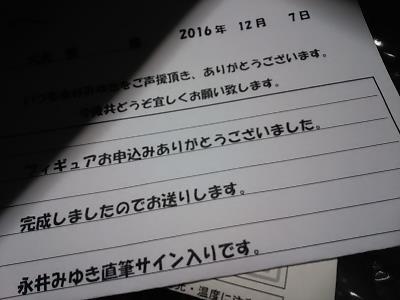 2016年 12月 7日
いつも永井みゆきをご声援頂き、ありがとうございます。
今後共どうぞ宜しくお願い致します。
フィギュアお申込みありがとうございました。
完成しましたのでお送りします。
永井みゆき直筆サイン入りです。
光・温度に注